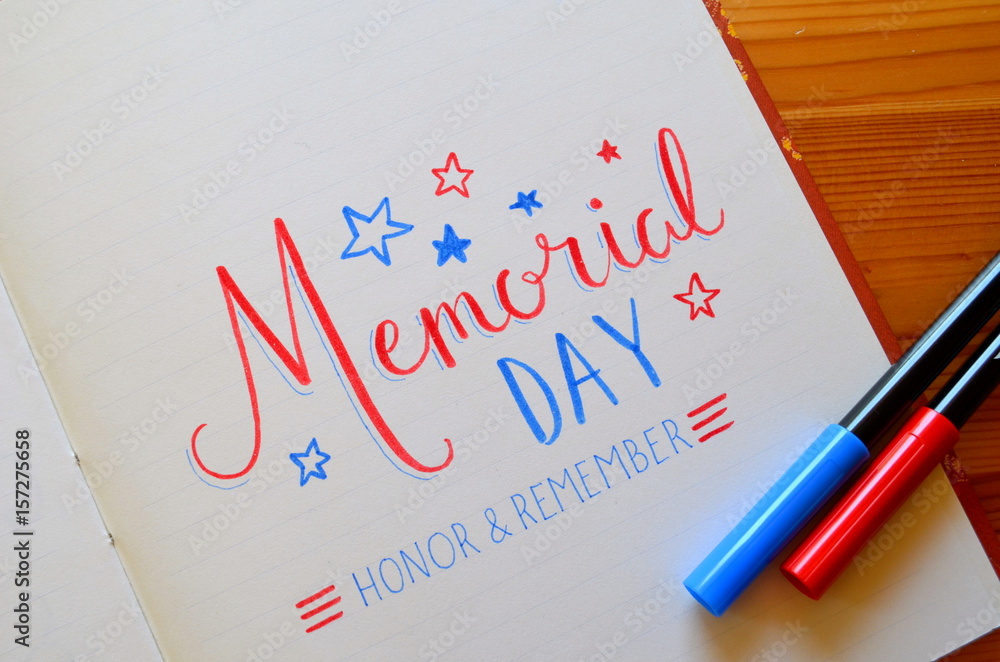 Memorial
DAY
HONOR & REMEMBER
Adobe Stock | #157275658